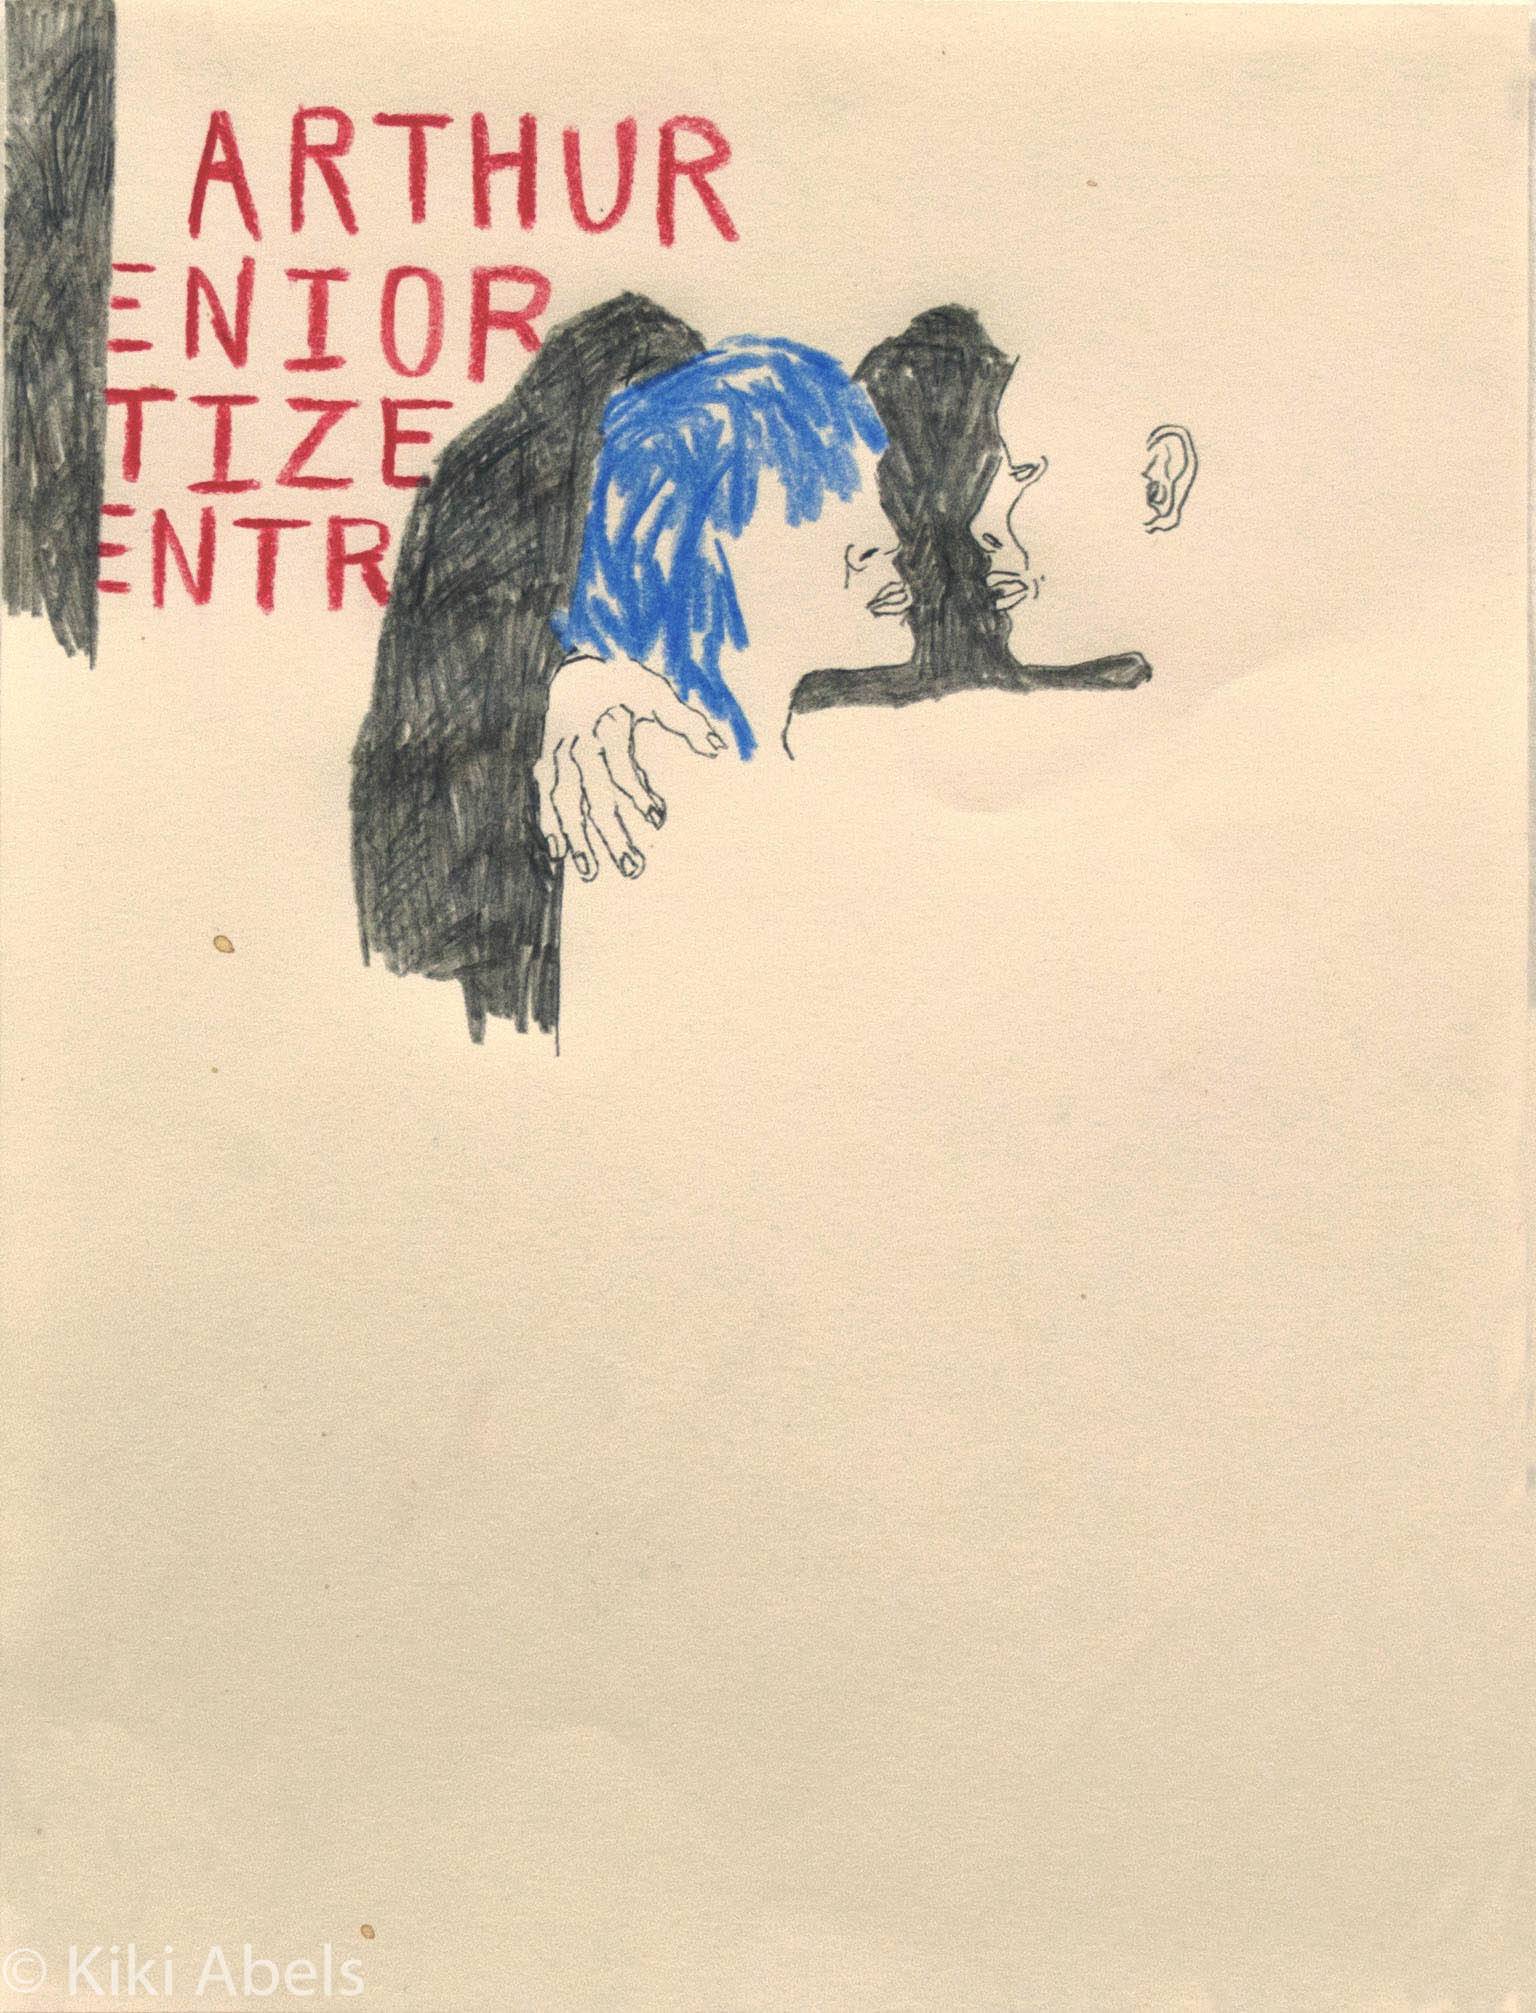 ARTHUR
ENIOR
TIZE
ENTR
© Kiki Abels